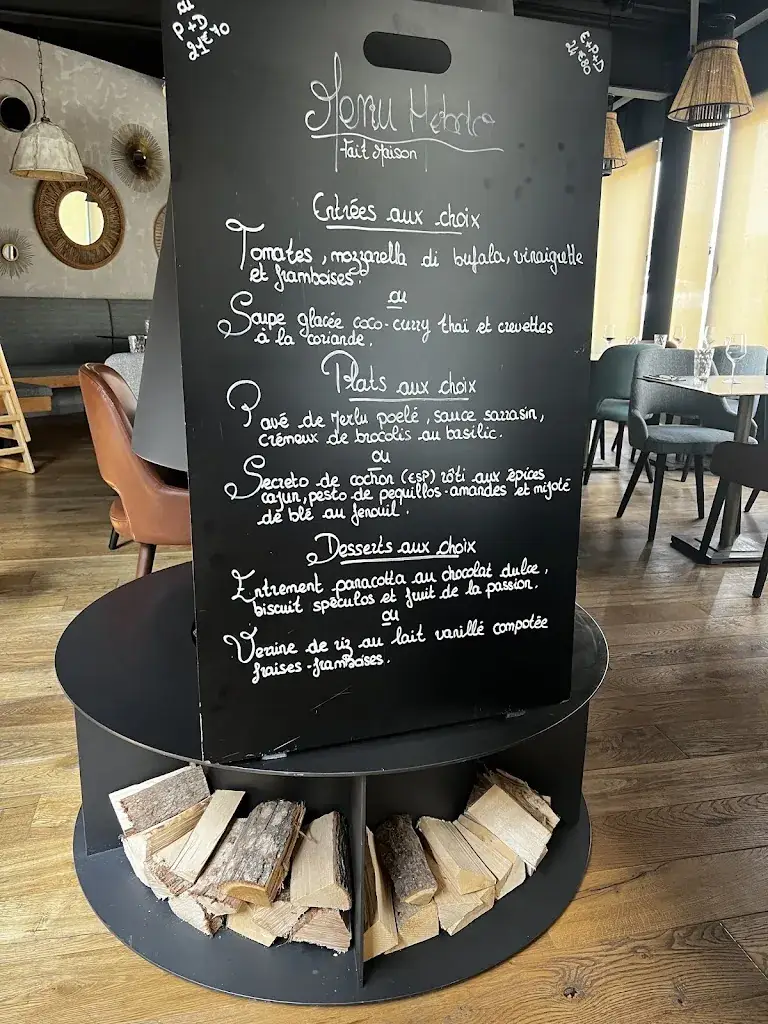 P+D
21€70
E+P+D
24€80
Menu Hebdo
Fait Maison
Entrées aux choix
Tomates, mozzarella di bufala, vinaigrette
et framboises.
ou
Soupe glacée coco-curry thaï et crevettes
à la coriande.
Plats aux choix
Pavé de Merlu poelé, sauce sarrasin,
crémeux de brocolis au basilic.
ou
Secreto de cochon (ESP) rôti aux épices
cajun, pesto de pequillos-amandes et mijoté
de blé au fenouil.
Desserts aux choix
Entrement panacotta au chocolat dulce,
biscuit spéculos et fruit de la passion.
ou
Verrine de riz au lait vanillé compotée
fraises-framboises.